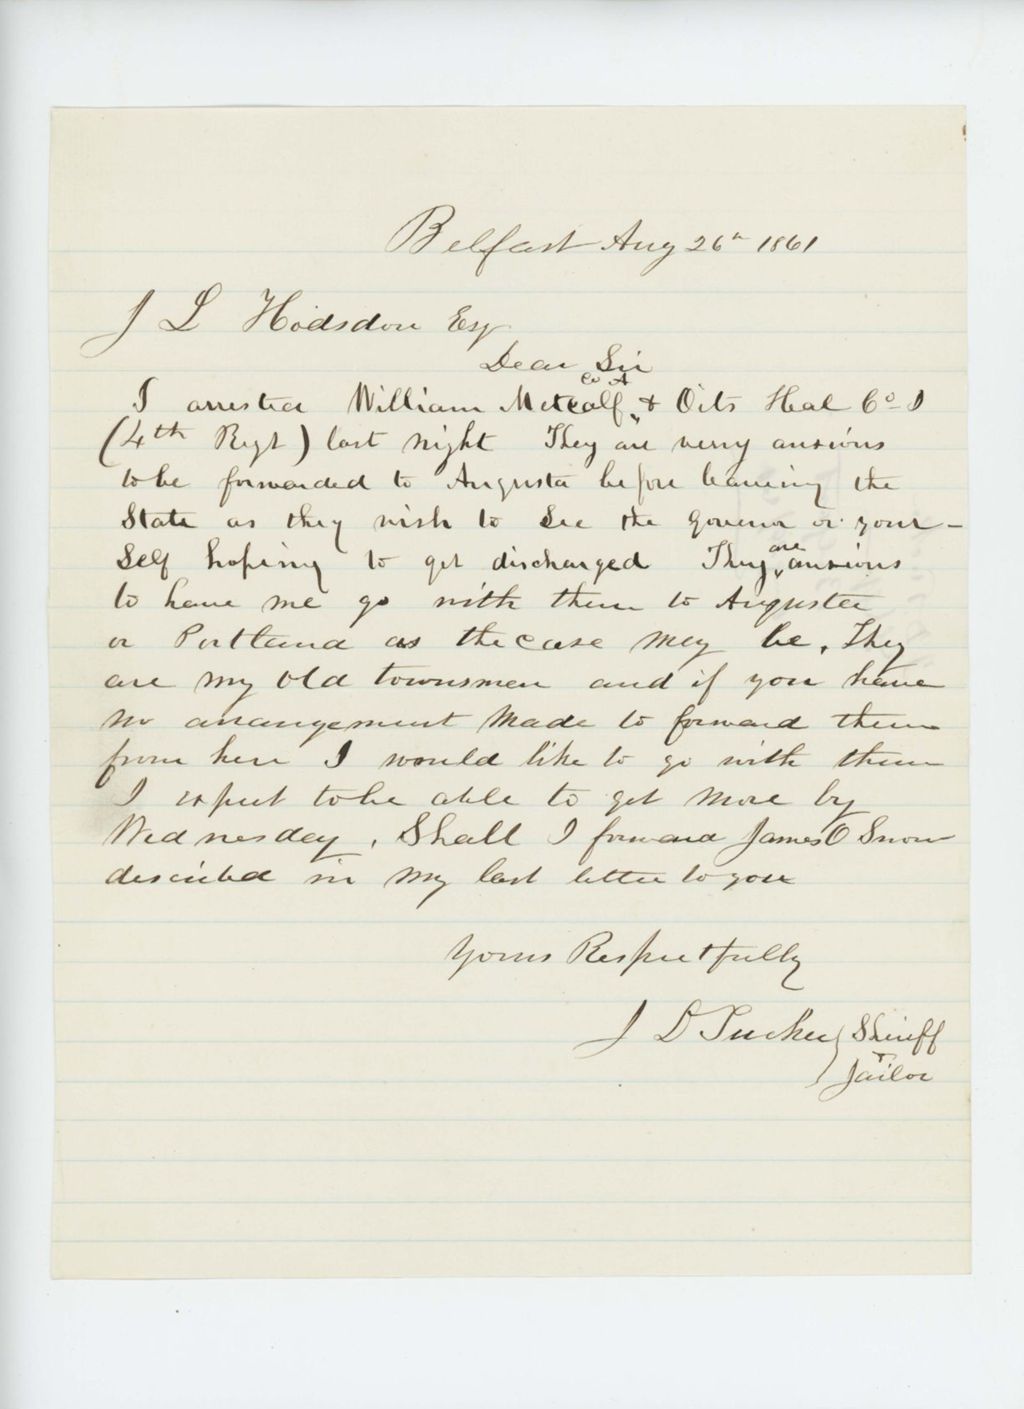 Belfast Aug 26th 1861
J L Hodsdon Esq
Dear Sir
Co A
I arrested William Metcalf, & Oits Heal Co I
(4th Regt) last night They are verry anxious
to be forwarded to Augusta before leaveing the
State as they wish to See the Govenor or your-
Self hopeing to get discharged They are anxious
to have me go with them to Augusta
or Portland as the case may be, They
are my old townsmen and if you have
no arrangement made to forward them
from here I would like to go with them
I expect to be able to get more by
Wednesday, Shall I forward James O Snow
described in my last letter to you
Yours Respectfully
J D Tucker Sheriff
+
Jailor